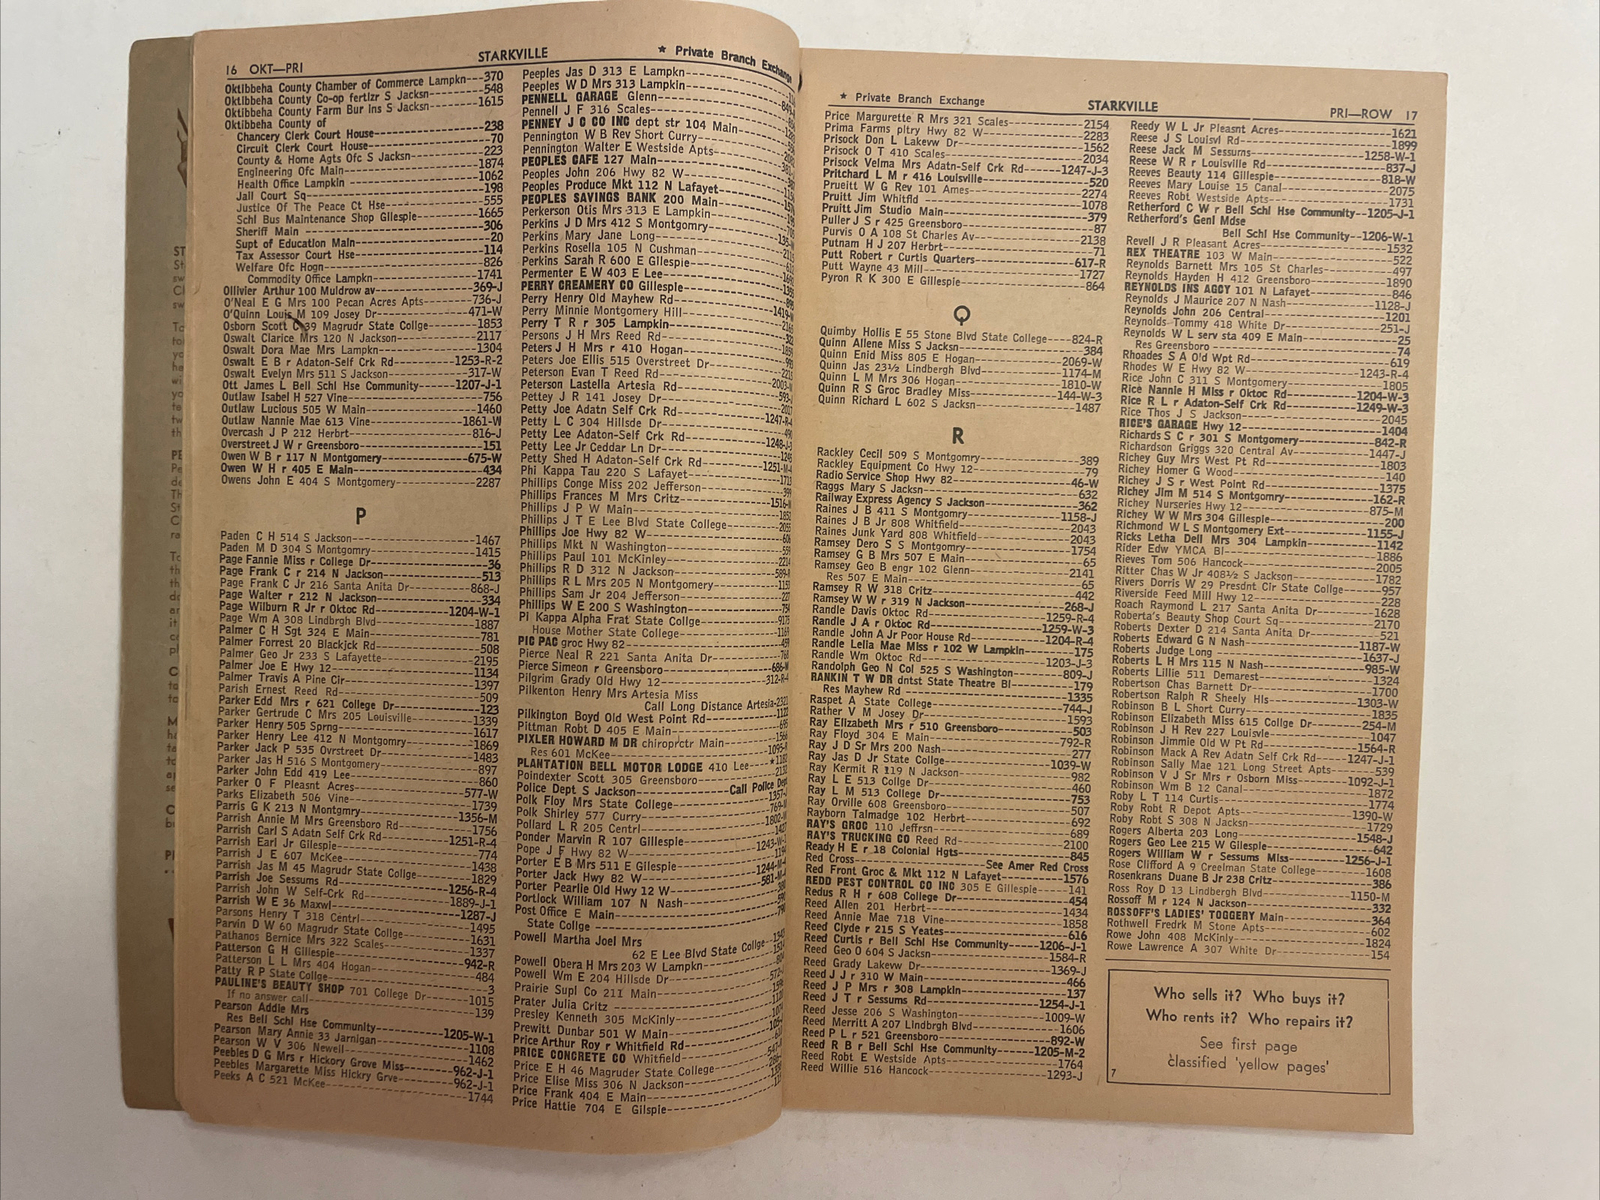 16 OKT—PRI
STARKVILLE
★ Private Branch Exchange
Oktibbeha County Chamber of Commerce Lampkn---370
Oktibbeha County Co-op fertlzr S Jacksn---548
Oktibbeha County Farm Bur ins S Jacksn---1615
Oktibbeha County of
Chancery Clerk Court House---238
Circuit Clerk Court House---70
County & Home Agts Ofc S Jacksn---223
Engineering Ofc Main---1874
Health Office Lampkin---1062
Jail Court Sq---198
Justice Of The Peace Ct Hse---555
Schl Bus Maintenance Shop Gllespie---1665
Sheriff Main---306
Supt of Education Main---20
Tax Assessor Court Hse---114
Welfare Ofc Hogn---826
Commodity Office Lampkn---1741
Ollivier Arthur 100 Muldrow av---369-J
O'Neal E G Mrs 100 Pecan Acres Apts---736-J
O'Quinn Louis M 109 Josey Dr---471-W
Osborn Scott C 39 Magrudr State Collge---1853
Oswalt Clarice Mrs 120 N Jackson---2117
Oswalt Dora Mae Mrs Lampkn---1304
Oswalt E B r Adaton-Self Crk Rd---1253-R-2
Oswalt Evelyn Mrs 511 S Jackson---317-W
Ott James L Bell Schl Hse Community---1207-J-1
Outlaw Isabel H 527 Vine---756
Outlaw Lucious 505 W Main---1460
Outlaw Nannie Mae 613 Vine---1861-W
Overcash J P 212 Herbrt---816-J
Overstreet J W r Greensboro---151
Owen W B r 117 N Montgomery---675-W
Owen W H r 405 E Main---434
Owens John E 404 S Montgomery---2287
P
Paden C H 514 S Jackson---1467
Paden M D 304 S Montgomry---1415
Page Fannie Miss r College Dr---36
Page Frank C r 214 N Jackson---513
Page Frank C Jr 216 Santa Anita Dr---868-J
Page Walter r 212 N Jackson---334
Page Wilburn R Jr r Oktoc Rd---1204-W-1
Page Wm A 308 Lindbrgh Blvd---1887
Palmer C H Sgt 324 E Main---781
Palmer Forrest 20 Blackjck Rd---508
Palmer Geo Jr 233 S Lafayette---2195
Palmer Joe E Hwy 12---1134
Palmer Travis A Pine Cir---1397
Parish Ernest Reed Rd---509
Parker Edd Mrs r 621 College Dr---123
Parker Gertrude C Mrs 205 Louisville---1339
Parker Henry 505 Sprng---1617
Parker Henry Lee 412 N Montgomry---1869
Parker Jack P 535 Ovrstreet Dr---1483
Parker Jas H 516 S Montgomery---897
Parker John Edd 419 Lee---860
Parker O F Pleasnt Acres---577-W
Parks Elizabeth 506 Vine---1739
Parris G K 213 N Montgmry---1356-M
Parrish Annie M Mrs Greensboro Rd---1756
Parrish Carl S Adatn Self Crk Rd---1251-R-4
Parrish Earl Jr Gllespie---774
Parrish J E 607 McKee---1438
Parrish Jas M 45 Magrudr State Collge---1829
Parrish Joe Sessums Rd---1256-R-4
Parrish John W Self-Crk Rd---1889-J-1
Parrish W E 36 Maxwl---1287-J
Parsons Henry T 318 Centrl---1495
Parvin D W 60 Magrudr State College---1631
Pathanos Bernice Mrs 322 Scales---1337
Patterson G H Gillespie---942-R
Patterson L L Mrs 404 Hogan---484
Patty R P State Collge---3
PAULINE'S BEAUTY SHOP 701 College Dr---1015
If no answer call---139
Pearson Addie Mrs
Res Bell Schl Hse Community---1205-W-1
Pearson Mary Annie 33 Jarnigan---1108
Pearson W V 306 Newell---1462
Peebles D G Mrs r Hickory Grove Miss---962-J-1
Peebles Margarette Miss Hickry Grve---962-J-1
Peeks A C 521 McKee---1744
Peeples Jas D 313 E Lampkn
Peeples W D Mrs 313 Lampkn
PENNELL GARAGE Glenn
Pennell J F 316 Scales
PENNEY J C CO INC dept str 104 Main
Pennington W B Rev Short Curry
Pennington Walter E Westside Apts
PEOPLES CAFE 127 Main
Peoples John 206 Hwy 82 W
Peoples Produce Mkt 112 N Lafayet
PEOPLES SAVINGS BANK 200 Main
Perkerson Otis Mrs 313 E Lampkn
Perkins J D Mrs 412 S Montgomry
Perkins Mary Jane Long
Perkins Rosella 105 N Cushman
Perkins Sarah R 600 E Gllespie
Permenter E W 403 E Lee
PERRY CREAMERY CO Gillespie
Perry Henry Old Mayhew Rd
Perry Minnie Montgomery Hill
Perry T R r 305 Lampkin
Persons J H Mrs Reed Rd
Peters J H Mrs r 410 Hogan
Peters Joe Ellis 515 Overstreet Dr
Peterson Evan T Reed Rd
Peterson Lastella Artesia Rd
Pettey J R 141 Josey Dr
Petty Joe Adatn Self Crk Rd
Petty L C 304 Hillsde Dr
Petty Lee Adaton-Self Crk Rd
Petty Lee Jr Ceddar Ln Dr
Petty Shed H Adaton-Self Crk Rd
Phi Kappa Tau 220 S Lafayet
Phillips Conge Miss 202 Jefferson
Phillips Frances M Mrs Critz
Phillips J P W Main
Phillips J T E Lee Blvd State College
Phillips Joe Hwy 82 W
Phillips Mkt N Washington
Phillips Paul 101 McKinley
Phillips R D 312 N Jackson
Phillips R L Mrs 205 N Montgomery
Phillips Sam Jr 204 Jefferson
Phillips W E 200 S Washington
Pi Kappa Alpha Frat State Collge
House Mother State College
PIC PAC groc Hwy 82
Pierce Neal R 221 Santa Anita Dr
Pierce Simeon r Greensboro
Pilgrim Grady Old Hwy 12
Pilkenton Henry Mrs Artesia Miss
Call Long Distance Artesia-2321
Pilkington Boyd Old West Point Rd
Pittman Robt D 405 E Main
PIXLER HOWARD M DR chiroprctr Main
Res 601 McKee
PLANTATION BELL MOTOR LODGE 410 Lee
Poindexter Scott 305 Greensboro
Police Dept S Jackson---Call Police Dept
Polk Floy Mrs State College
Polk Shirley 577 Curry
Pollard L R 205 Centrl
Ponder Marvin R 107 Gillespie
Pope J F Hwy 82 W
Porter E B Mrs 511 E Gllespie
Porter Jack Hwy 82 W
Porter Pearlie Old Hwy 12 W
Portlock William 107 N Nash
Post Office E Main
State Collge
Powell Martha Joel Mrs
62 E Lee Blvd State Collge
Powell Obera H Mrs 203 W Lampkn
Powell Wm E 204 Hillsde Dr
Prairie Supl Co 211 Main
Prater Julia Critz
Presley Kenneth 305 McKinly
Prewitt Dunbar 501 W Main
Price Arthur Roy r Whitfield Rd
PRICE CONCRETE CO Whitfield
Price E H 46 Magruder State College
Price Elise Miss 306 N Jackson
Price Frank 404 E Main
Price Hattie 704 E Gilspie
★ Private Branch Exchange
STARKVILLE
PRI—ROW 17
Price Margurette R Mrs 321 Scales---2154
Prima Farms pltry Hwy 82 W---2283
Prisock Don L Lakevw Dr---1562
Prisock O T 410 Scales---2034
Prisock Velma Mrs Adatn-Self Crk Rd---1247-J-3
Pritchard L M r 416 Louisville---520
Prueitt W G Rev 101 Ames---2274
Pruitt Jim Whitfld---1078
Pruitt Jim Studio Main---379
Puller J S r 425 Greensboro---87
Purvis O A 108 St Charles Av---2138
Putnam H J 207 Herbrt---71
Putt Robert r Curtis Quarters---617-R
Putt Wayne 43 Mill---1727
Pyron R K 300 E Gillespie---864
Q
Quimby Hollis E 55 Stone Blvd State College---824-R
Quinn Allene Miss S Jackson---384
Quinn Enid Miss 805 E Hogan---2069-W
Quinn Jas 23½ Lindbergh Blvd---1174-M
Quinn L M Mrs 306 Hogan---1810-W
Quinn R S Groc Bradley Miss---144-W-3
Quinn Richard L 602 S Jacksn---1487
R
Rackley Cecil 509 S Montgomry---389
Rackley Equipment Co Hwy 12---79
Radio Service Shop Hwy 82---46-W
Raggs Mary S Jacksn---632
Railway Express Agency S Jackson---362
Raines J B 411 S Montgomry---1158-J
Raines J B Jr 808 Whitfield---2043
Raines Junk Yard 808 Whitfield---2043
Ramsey Dero S S Montgomry---1754
Ramsey G B Mrs 507 E Main---65
Ramsey Geo B engr 102 Glenn---2141
Res 507 E Main---65
Ramsey R W 318 Critz---442
Ramsey W W r 319 N Jackson---268-J
Randle Davis Oktoc Rd---1259-R-4
Randle J A r Oktoc Rd---1259-W-3
Randle John A Jr Poor House Rd---1204-R-4
Randle Lelia Mae Miss r 102 W Lampkin---175
Randle Wm Oktoc Rd---1203-J-3
Randolph Geo N Col 525 S Washington---809-J
RANKIN T W DR dntst State Theatre Bl---179
Res Mayhew Rd---1335
Raspet A State College---744-J
Rather V M Josey Dr---1593
Ray Elizabeth Mrs r 510 Greensboro---503
Ray Floyd 304 E Main---792-R
Ray J D Sr Mrs 200 Nash---277
Ray Jas D Jr State College---1039-W
Ray Kermit R 119 N Jackson---982
Ray L E 513 Collge Dr---460
Ray L M 513 College Dr---753
Ray Orville 608 Greensboro---507
Rayborn Talmadge 102 Herbrt---692
RAY'S GROC 110 Jeffrsn---689
RAY'S TRUCKING CO Reed Rd---2100
Ready H E r 18 Colonial Hgts---845
Red Cross---See Amer Red Cross
Red Front Groc & Mkt 112 N Lafayet---1576
REDD PEST CONTROL CO INC 305 E Gillespie---141
Redus R H r 608 College Dr---454
Reed Allen 201 Herbrt---1434
Reed Annie Mae 718 Vine---1858
Reed Clyde r 215 S Yeates---616
Reed Curtis r Bell Schl Hse Community---1206-J-1
Reed Geo O 604 S Jacksn---1584-R
Reed Grady Lakevw Dr---1369-J
Reed J J r 310 W Main---466
Reed J P Mrs r 308 Lampkin---137
Reed J T r Sessums Rd---1254-J-1
Reed Jesse 206 S Washington---1009-W
Reed Merritt A 207 Lindbrgh Blvd---1606
Reed P L r 521 Greensboro---892-W
Reed R B r Bell Schl Hse Community---1205-M-2
Reed Robt E Westside Apts---1764
Reed Willie 516 Hancock---1293-J
Reedy W L Jr Pleasnt Acres---1621
Reese J S Louisvl Rd---1899
Reese Jack M Sessums---1258-W-1
Reese W R r Louisville Rd---837-J
Reeves Beauty 114 Gillespie---818-W
Reeves Mary Louise 15 Canal---2075
Reeves Robt Westside Apts---1731
Retherford C W r Bell Schl Hse Community---1205-J-1
Retherford's Genl Mdse
Bell Schl Hse Community---1206-W-1
Revell J R Pleasant Acres---1532
REX THEATRE 103 W Main---522
Reynolds Barnett Mrs 105 St Charles---497
Reynolds Hayden H 412 Greensboro---1890
REYNOLDS INS AGCY 101 N Lafayet---846
Reynolds J Maurice 207 N Nash---1128-J
Reynolds John 206 Central---1201
Reynolds Tommy 418 White Dr---251-J
Reynolds W L serv sta 409 E Main---25
Res Greensboro---74
Rhoades S A Old Wpt Rd---619
Rhodes W E Hwy 82 W---1243-R-4
Rice John C 311 S Montgomery---1805
Rice Nannie H Miss r Oktoc Rd---1204-W-3
Rice R L r Adaton-Self Crk Rd---1249-W-3
Rice Thos J S Jackson---2045
RICE'S GARAGE Hwy 12---1404
Richards S C r 301 S Montgomery---842-R
Richardson Griggs 320 Central Av---1447-J
Richey Guy Mrs West Pt Rd---1803
Richey Homer G Wood---140
Richey J S r West Point Rd---1375
Richey Jim M 514 S Montgomry---162-R
Richey Nurseries Hwy 12---875-M
Richey W W Mrs 304 Gillespie---200
Richmond W L S Montgomery Ext---1155-J
Ricks Letha Dell Mrs 304 Lampkin---1142
Rider Edw YMCA Bl---1886
Rieves Tom 506 Hancock---2005
Ritter Chas W Jr 408½ S Jackson---1782
Rivers Dorris W 29 Presdnt Clr State Collge---957
Riverside Feed Mill Hwy 12---228
Roach Raymond L 217 Santa Anita Dr---1628
Roberta's Beauty Shop Court Sq---2170
Roberts Dexter D 214 Santa Anita Dr---521
Roberts Edward G N Nash---1187-W
Roberts Judge Long---1637-J
Roberts L H Mrs 115 N Nash---985-W
Roberts Lillie 511 Demarest---1324
Robertson Chas Barnett Dr---1700
Robertson Ralph R Sheely Hls---1303-W
Robinson B L Short Curry---1835
Robinson Elizabeth Miss 615 Collge Dr---254-M
Robinson J H Rev 227 Louisvle---1047
Robinson Jimmie Old W Pt Rd---1564-R
Robinson Mack A Rev Adatn Self Crk Rd---1247-J-1
Robinson Sally Mae 121 Long Street Apts---539
Robinson V J Sr Mrs r Osborn Miss---1092-J-1
Robinson Wm B 12 Canal---1872
Roby L T 114 Curtis---1774
Roby Robt R Depot Apts---1390-W
Roby Robt S 308 N Jacksn---1729
Rogers Alberta 203 Long---1548-J
Rogers Geo Lee 215 W Gllespie---642
Rogers William W r Sessums Miss---1256-J-1
Rose Clifford A 9 Creelman State College---1608
Rosenkrans Duane B Jr 238 Critz---386
Ross Roy D 13 Lindbergh Blvd---1150-M
Rossoff M r 124 N Jackson---332
ROSSOFF'S LADIES' TOGGERY Main---364
Rothwell Fredrk M Stone Apts---602
Rowe John 408 McKinly---1824
Rowe Lawrence A 307 White Dr---154
Who sells it? Who buys it?
Who rents it? Who repairs it?
See first page
classified 'yellow pages'
7